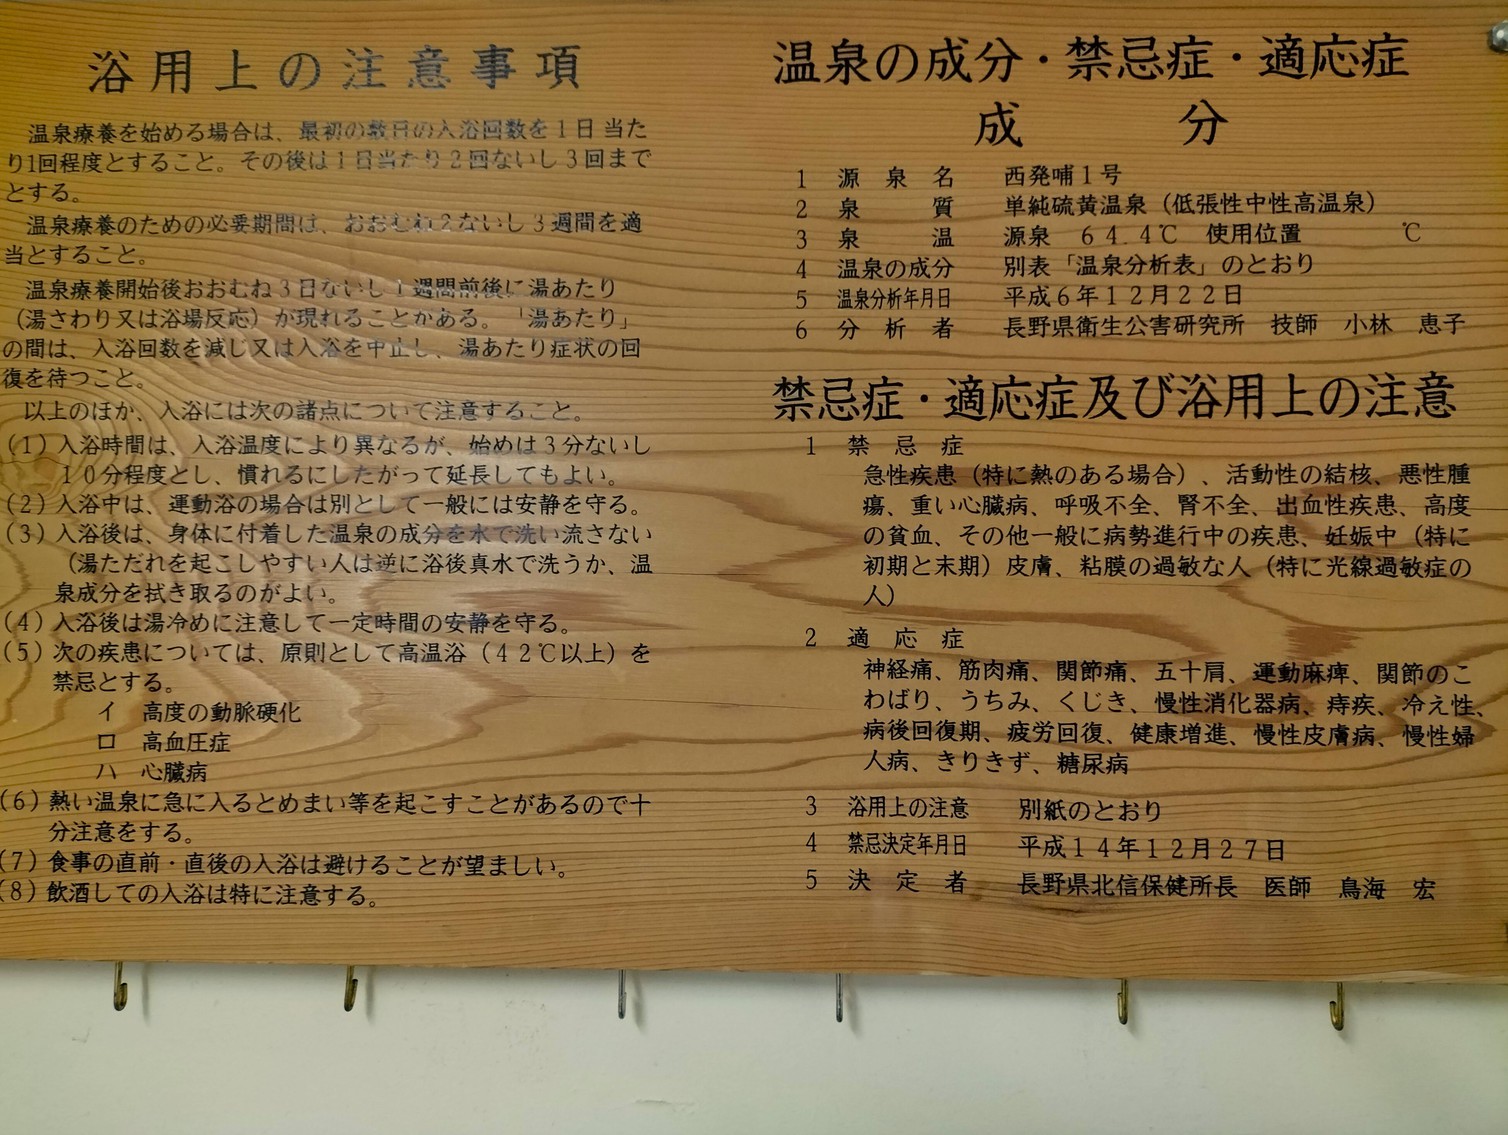 浴用上の注意事項
温泉療養を始める場合は、最初の数日の入浴回数を1日当た
り1回程度とすること。その後は1日当たり2回ないし3回まで
とする。
温泉療養のための必要期間は、おおむね2ないし3週間を適
当とすること。
温泉療養開始後おおむね3日ないし1週間前後に湯あたり
（湯さわり又は浴場反応）が現れることがある。「湯あたり」
の間は、入浴回数を減じ又は入浴を中止し、湯あたり症状の回
復を待つこと。
以上のほか、入浴には次の諸点について注意すること。
(1)入浴時間は、入浴温度により異なるが、始めは3分ないし
10分程度とし、慣れるにしたがって延長してもよい。
(2)入浴中は、運動浴の場合は別として一般には安静を守る。
(3)入浴後は、身体に付着した温泉の成分を水で洗い流さない
（湯ただれを起こしやすい人は逆に浴後真水で洗うか、温
泉成分を拭き取るのがよい。
(4)入浴後は湯冷めに注意して一定時間の安静を守る。
(5)次の疾患については、原則として高温浴（42℃以上）を
禁忌とする。
イ 高度の動脈硬化
ロ 高血圧症
ハ 心臓病
(6)熱い温泉に急に入るとめまい等を起こすことがあるので十
分注意をする。
(7)食事の直前・直後の入浴は避けることが望ましい。
(8)飲酒しての入浴は特に注意する。
温泉の成分・禁忌症・適応症
成 分
1 源泉名 西発哺1号
2 泉質 単純硫黄温泉（低張性中性高温泉）
3 泉温 源泉 64.4℃ 使用位置 ℃
4 温泉の成分 別表「温泉分析表」のとおり
5 温泉分析年月日 平成6年12月22日
6 分析者 長野県衛生公害研究所 技師 小林 恵子
禁忌症・適応症及び浴用上の注意
1 禁忌症
急性疾患（特に熱のある場合）、活動性の結核、悪性腫
瘍、重い心臓病、呼吸不全、腎不全、出血性疾患、高度
の貧血、その他一般に病勢進行中の疾患、妊娠中（特に
初期と末期）皮膚、粘膜の過敏な人（特に光線過敏症の
人）
2 適応症
神経痛、筋肉痛、関節痛、五十肩、運動麻痺、関節のこ
わばり、うちみ、くじき、慢性消化器病、痔疾、冷え性、
病後回復期、疲労回復、健康増進、慢性皮膚病、慢性婦
人病、きりきず、糖尿病
3 浴用上の注意 別紙のとおり
4 禁忌決定年月日 平成14年12月27日
5 決定者 長野県北信保健所長 医師 鳥海 宏